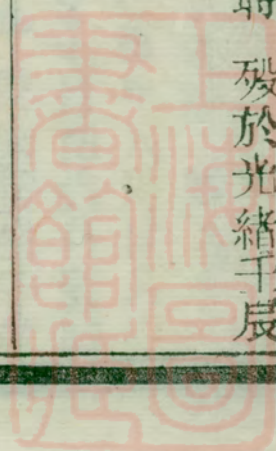 時 歿於光緒壬辰
上海圖書館藏